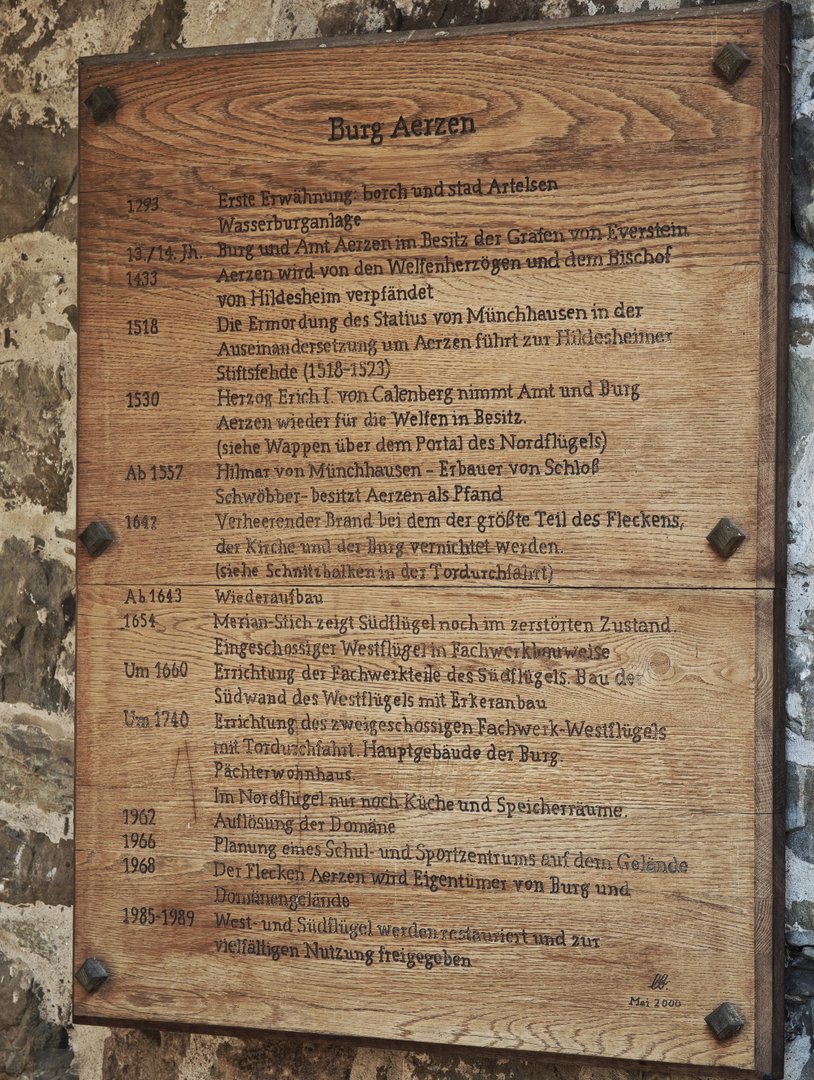 Burg Aerzen
1293 Erste Erwähnung: borch und stad Artelsen
Wasserburganlage
13./14. Jh. Burg und Amt Aerzen im Besitz der Grafen von Everstein
1433 Aerzen wird von den Welfenherzögen und dem Bischof
von Hildesheim verpfändet
1518 Die Ermordung des Statius von Münchhausen in der
Auseinandersetzung um Aerzen führt zur Hildesheimer
Stiftsfehde (1518-1523)
1530 Herzog Erich I. von Calenberg nimmt Amt und Burg
Aerzen wieder für die Welfen in Besitz.
(siehe Wappen über dem Portal des Nordflügels)
Ab 1557 Hilmar von Münchhausen - Erbauer von Schloß
Schwöbber- besitzt Aerzen als Pfand
1642 Verheerender Brand bei dem der größte Teil des Fleckens,
der Kirche und der Burg vernichtet werden.
(siehe Schnitzbalken in der Tordurchfahrt)
Ab 1643 Wiederaufbau
1654 Merian-Stich zeigt Südflügel noch im zerstörten Zustand.
Eingeschossiger Westflügel in Fachwerkbauweise
Um 1660 Errichtung der Fachwerkteile des Südflügels. Bau der
Südwand des Westflügels mit Erkeranbau
Um 1740 Errichtung des zweigeschossigen Fachwerk-Westflügels
mit Tordurchfahrt. Hauptgebäude der Burg.
Pächterwohnhaus.
Im Nordflügel nur noch Küche und Speicherräume.
1962 Auflösung der Domäne
1966 Planung eines Schul- und Sportzentrums auf dem Gelände
1968 Der Flecken Aerzen wird Eigentümer von Burg und
Domänengelände
1985-1989 West- und Südflügel werden restauriert und zur
vielfältigen Nutzung freigegeben
Mai 2000